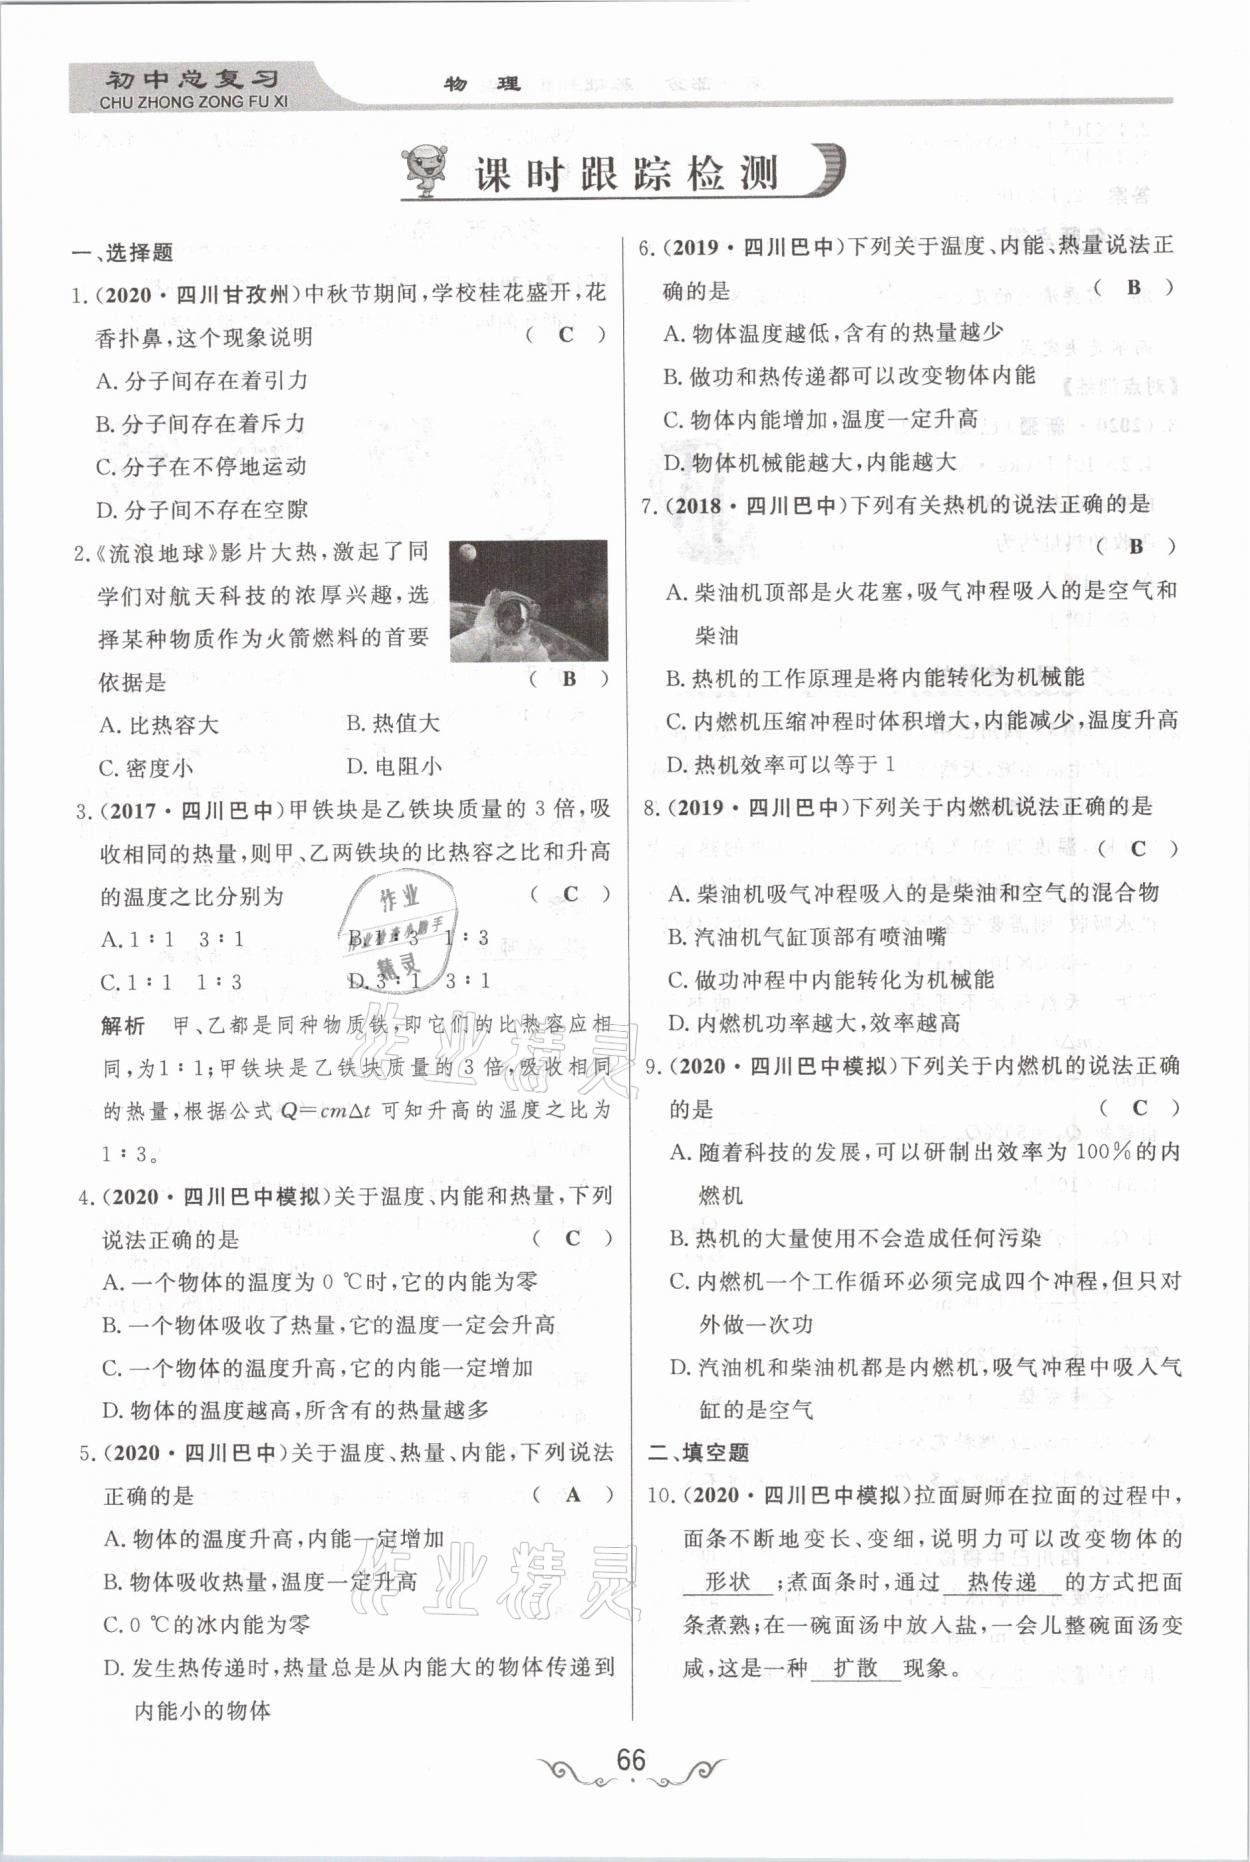 初中总复习
CHU ZHONG ZONG FU XI
物 理
课时跟踪检测
一、选择题
1.(2020·四川甘孜州)中秋节期间,学校桂花盛开,花
香扑鼻,这个现象说明 ( C )
A. 分子间存在着引力
B. 分子间存在着斥力
C. 分子在不停地运动
D. 分子间不存在空隙
2.《流浪地球》影片大热,激起了同
学们对航天科技的浓厚兴趣,选
择某种物质作为火箭燃料的首要
依据是 ( B )
A. 比热容大 B. 热值大
C. 密度小 D. 电阻小
3.(2017·四川巴中)甲铁块是乙铁块质量的 3 倍,吸
收相同的热量,则甲、乙两铁块的比热容之比和升高
的温度之比分别为 ( C )
A.1∶1 3∶1 B.1∶3 1∶3
C.1∶1 1∶3 D.3∶1 3∶1
解析 甲、乙都是同种物质铁,即它们的比热容应相
同,为1∶1;甲铁块是乙铁块质量的 3 倍,吸收相同
的热量,根据公式 Q=cmΔt 可知升高的温度之比为
1∶3。
4.(2020·四川巴中模拟)关于温度、内能和热量,下列
说法正确的是 ( C )
A. 一个物体的温度为 0 ℃时,它的内能为零
B. 一个物体吸收了热量,它的温度一定会升高
C. 一个物体的温度升高,它的内能一定增加
D. 物体的温度越高,所含有的热量越多
5.(2020·四川巴中)关于温度、热量、内能,下列说法
正确的是 ( A )
A. 物体的温度升高,内能一定增加
B. 物体吸收热量,温度一定升高
C.0 ℃的冰内能为零
D. 发生热传递时,热量总是从内能大的物体传递到
内能小的物体
6.(2019·四川巴中)下列关于温度、内能、热量说法正
确的是 ( B )
A. 物体温度越低,含有的热量越少
B. 做功和热传递都可以改变物体内能
C. 物体内能增加,温度一定升高
D. 物体机械能越大,内能越大
7.(2018·四川巴中)下列有关热机的说法正确的是
( B )
A. 柴油机顶部是火花塞,吸气冲程吸入的是空气和
柴油
B. 热机的工作原理是将内能转化为机械能
C. 内燃机压缩冲程时体积增大,内能减少,温度升高
D. 热机效率可以等于 1
8.(2019·四川巴中)下列关于内燃机说法正确的是
( C )
A. 柴油机吸气冲程吸入的是柴油和空气的混合物
B. 汽油机气缸顶部有喷油嘴
C. 做功冲程中内能转化为机械能
D. 内燃机功率越大,效率越高
9.(2020·四川巴中模拟)下列关于内燃机的说法正确
的是 ( C )
A. 随着科技的发展,可以研制出效率为 100%的内
燃机
B. 热机的大量使用不会造成任何污染
C. 内燃机一个工作循环必须完成四个冲程,但只对
外做一次功
D. 汽油机和柴油机都是内燃机,吸气冲程中吸入气
缸的是空气
二、填空题
10.(2020·四川巴中模拟)拉面厨师在拉面的过程中,
面条不断地变长、变细,说明力可以改变物体的
形状 ;煮面条时,通过 热传递 的方式把面
条煮熟;在一碗面汤中放入盐,一会儿整碗面汤变
咸,这是一种 扩散 现象。
作业
作业检查小助手
精灵
作业精灵
作业精灵
66